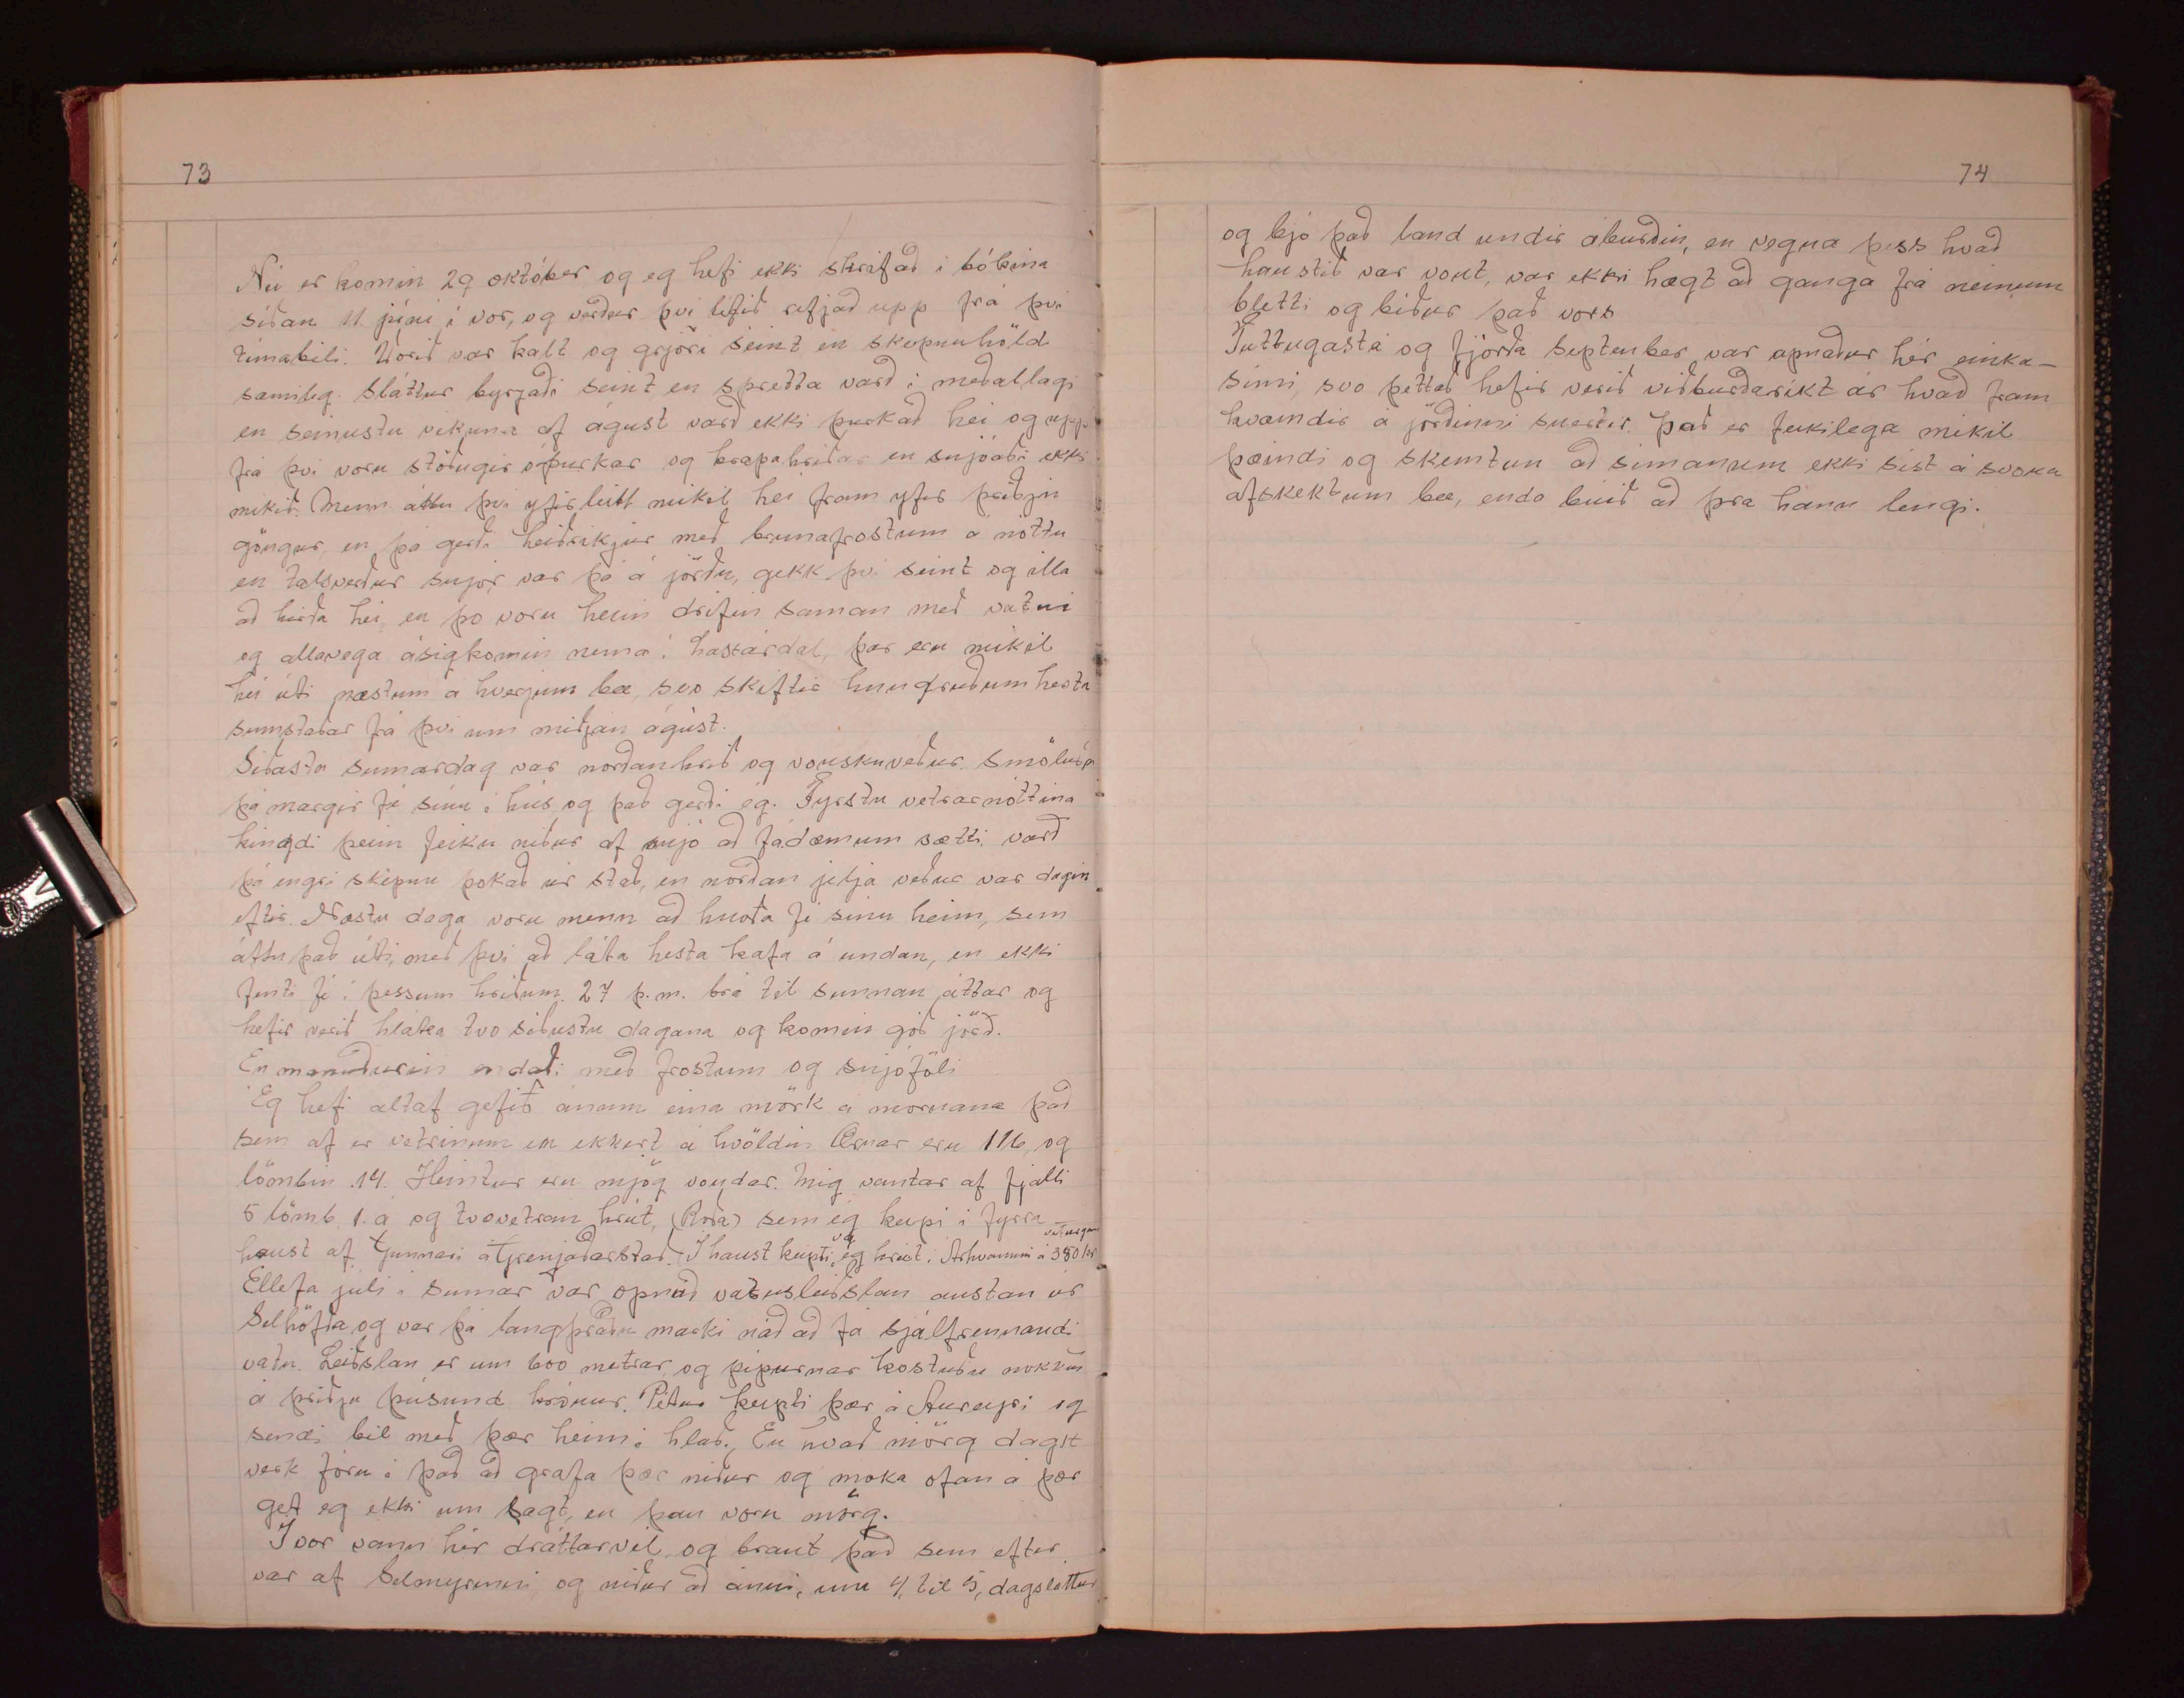 73
Nú er komin 29 október og eg hefi ekki skrifað i bókina
siðan 11 júni i vor, og verður þvi litið rifjað upp frá þvi
timabili. Vorið var kalt og grjöri seint en skepnuhöld
samileg. Sláttur byrjaði seint en spretta varð i meðallagi
en seinustu vikuna af águst varð ekki þurkað hei og upp
frá þvi voru stöðugir óþurkar og krapahriðar en snjóaði ekki
mikið. Menn áttu þvi yfirleitt mikil hei fram yfir þriðju
göngur, en þá gerði heiðrikjur með brunafrostum á nóttu
en talsverður snjór var þá á jörðu, gekk þvi seint og illa
að hirða hei, en þo voru heiin drifin saman með vatni
og allavega ásigkomin nema i Laxárdal, þar eru mikil
hei úti næstum á hverjum bæ, svo skiftir hundruðum hesta
sumstaðar frá þvi um miðjan ágúst.
Siðasta sumardag var norðanhrið og vonskuveður. Smöluðu
þá margir fé sinu i hús og það gerði ég. Fyrstu vetrarnóttina
hingdi þeim feikn niður af snjó að fádæmum sætti, varð
þá engri skepnu þokað úr stað, en norðan jelja veður var dagin
eftir. Næstu daga voru menn að hnoða fé sinu heim, sem
áttu það úti, með þvi að láta hesta kafa á undan, en ekki
fenti fé i þessum hriðum. 27 þ.m. brá til sunnan áttar og
hefir verið hláka tvo siðustu dagana og komin góð jörð.
En mánuðurin endaði með frostum og snjóföli
Eg hefi altaf gefið ánum eina mörk á mornana það
sem af er vetrinum en ekkert á kvöldin. Ærnar eru 116, og
lömbin 14. Heimtur eru mjög vondar. Mig vantar af fjalli
5 lömb 1. á og tvovetran hrút, (Roða) sem ég keypi i fyrra
haust af Gunnari á Grenjaðarstað. I haust keypti ég veturgam hrút i Arhvammi á 380 kr
Ellefa juli i sumar var opnuð vatnsleiðslan austan úr
Selhöfða, og var þá langþráðu marki náð að fá sjálfrennandi
vatn. Leiðslan er um 600 metrar, og pipurnar kostuðu nokkuð
á þriðju þúsund krónur. Pétur keypti þær á Akureyri og
sendi bil með þær heim i hlað. En hvað mörg dagst
verk fóru i það að grafa þær niður og moka ofan á þær
get eg ekki um sagt, en þau voru mörg.
I vor vann hér dráttarvél og braut það sem eftir
var af Selmyrinni og niður að ánni, um 4 til 5, dagsláttur
74
og bjó það land undir áburðin, en vegna þess hvað
haustið var vont, var ekki hægt að ganga frá neinum
bletti og biður það vors
Tuttugasta og fjórða september var opnaður hér einka-
simi, svo þettað hefir verið viðburðarikt ár hvað fram
kvæmdir á jörðinni snertir. Það er feikilega mikil
þæindi og skemtun að simanum ekki sist á svona
afskektum bæ, enda búið að þrá hann lengi.